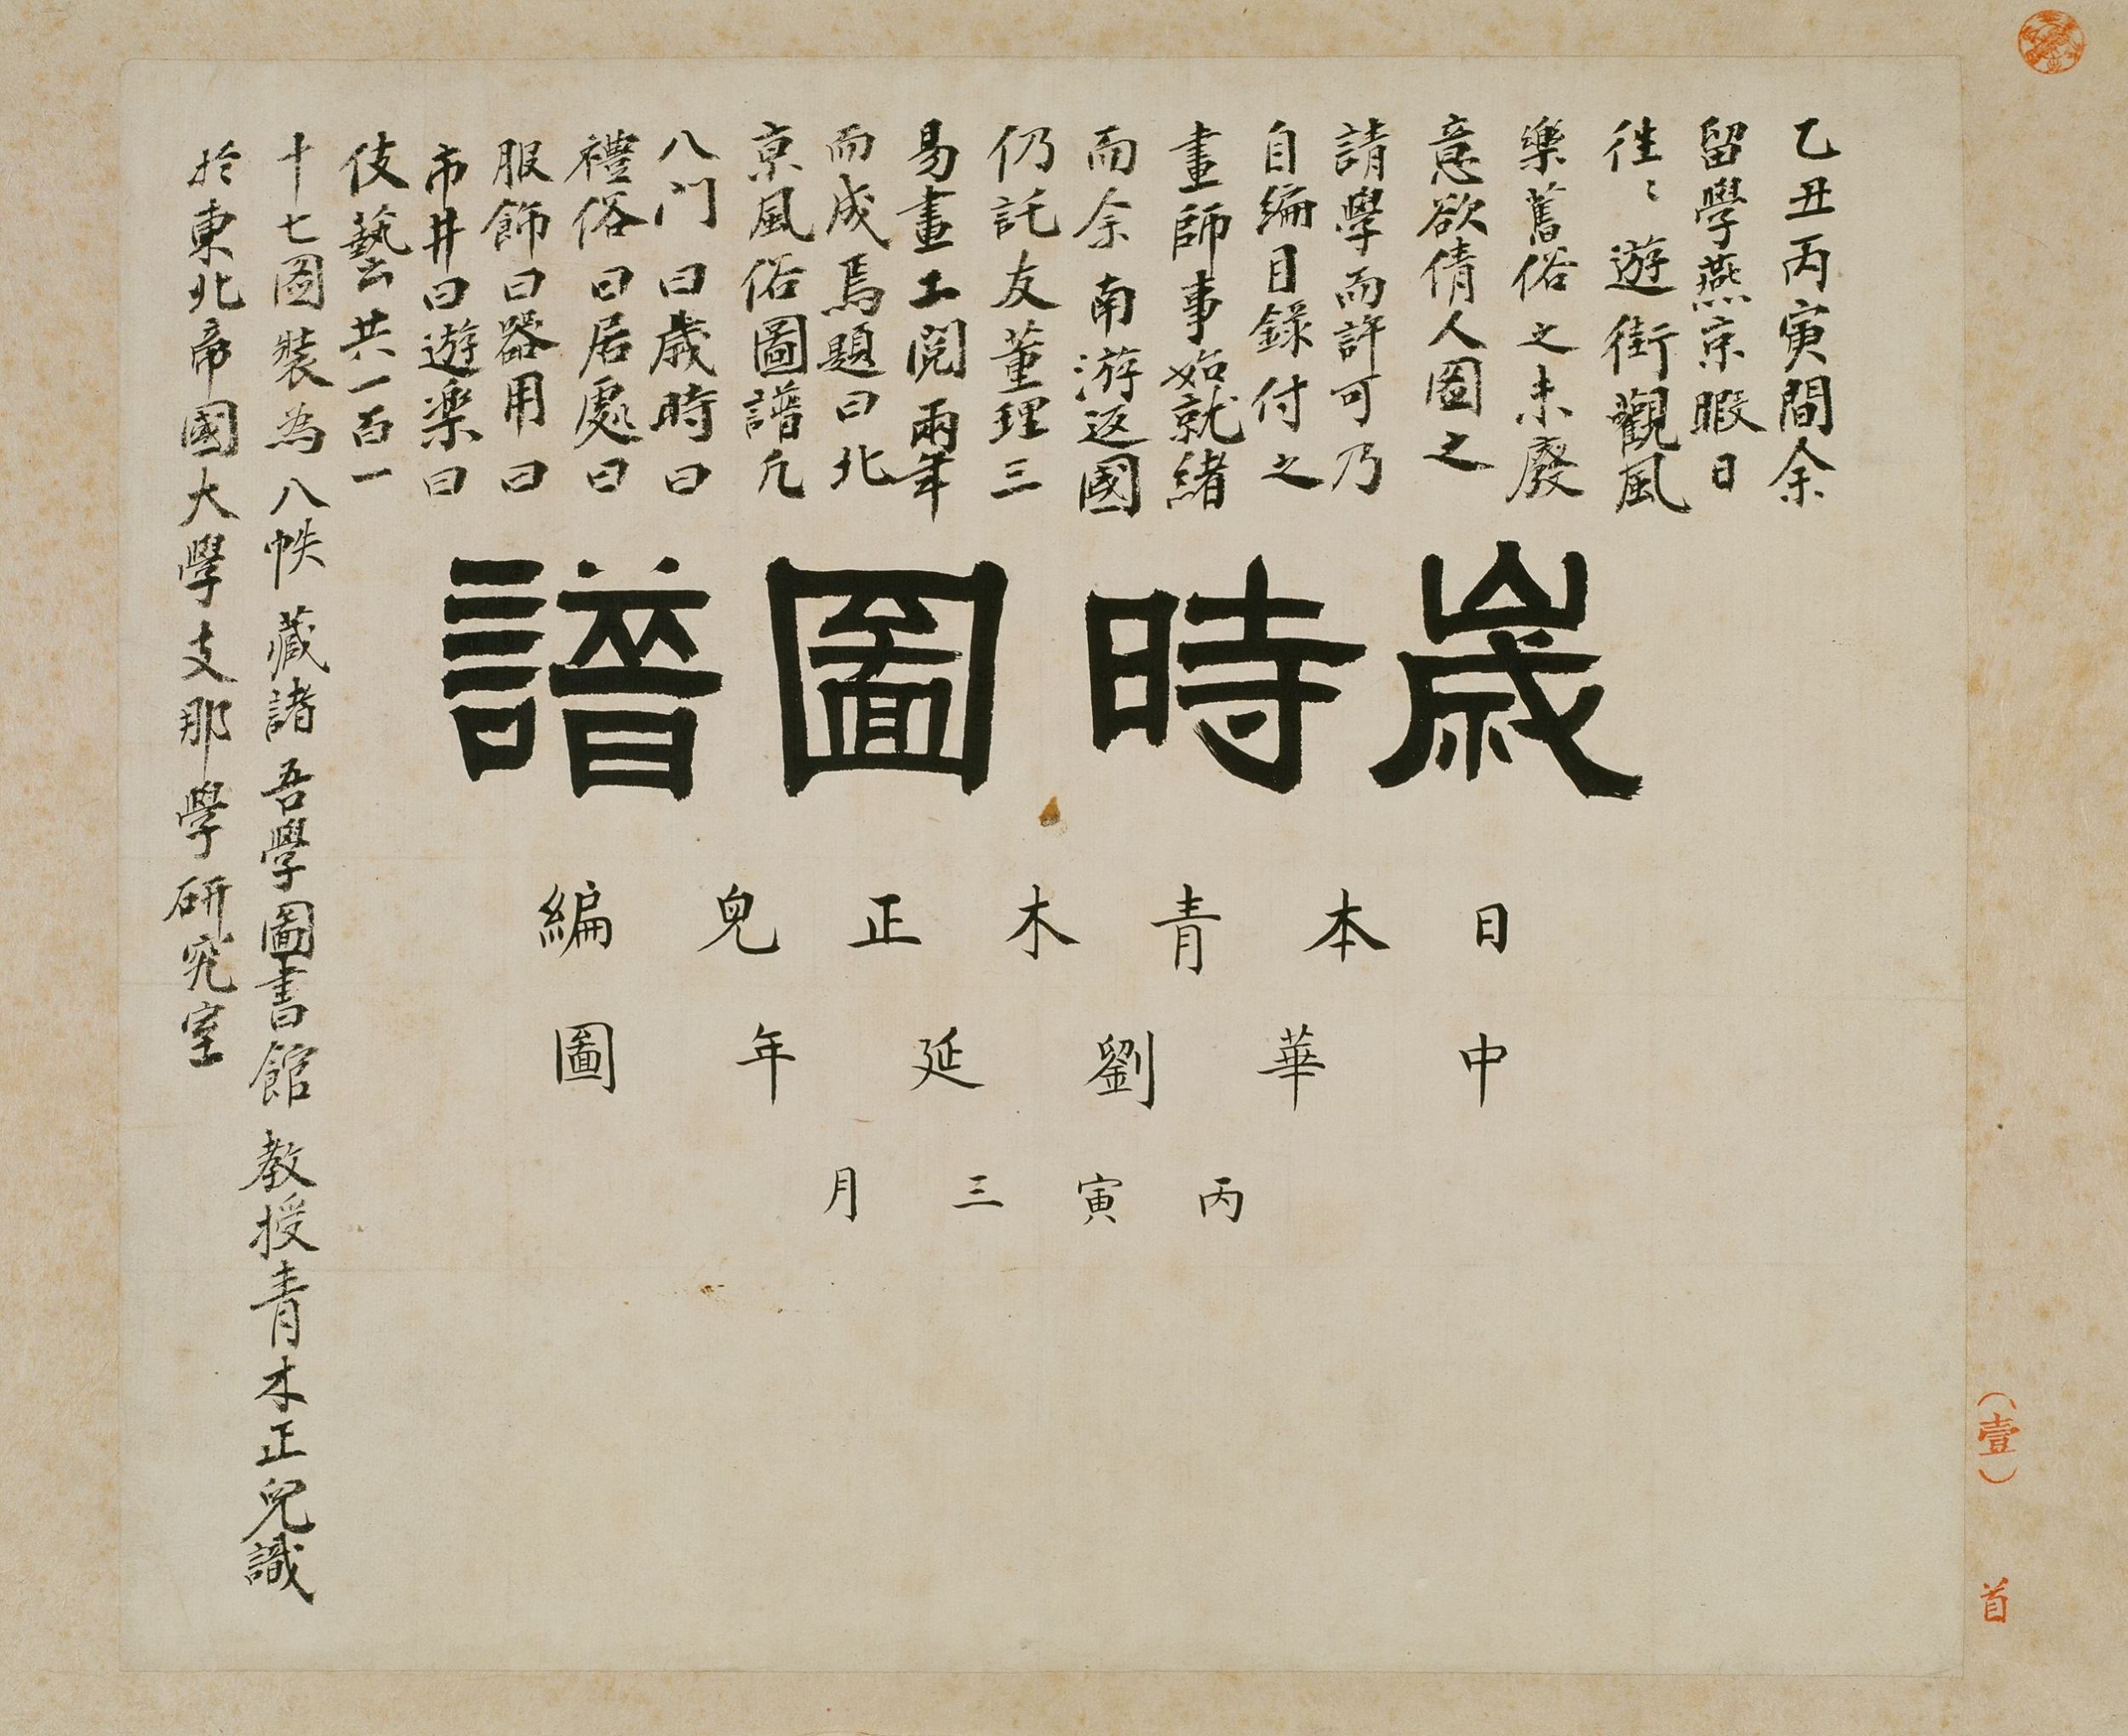 乙丑丙寅間余
留學燕京暇日
徃〻遊街觀風
樂舊俗之未廢
意欲倩人圖之
請學而許可乃
自編目錄付之
畫師事始就緒
而余南游返國
仍託友董理三
易畫工閱兩年
而成焉題曰北
京風俗圖譜凡
八门曰歲時曰
禮俗曰居處曰
服飾曰器用曰
市井曰遊樂曰
伎藝共一百一
十七圖裝為八帙藏諸吾學圖書館教授青木正兒識
於東北帝國大學支那學研究室
歲時圖譜
日本青木正兒編
中華劉延年圖
丙寅三月
(壹)
首